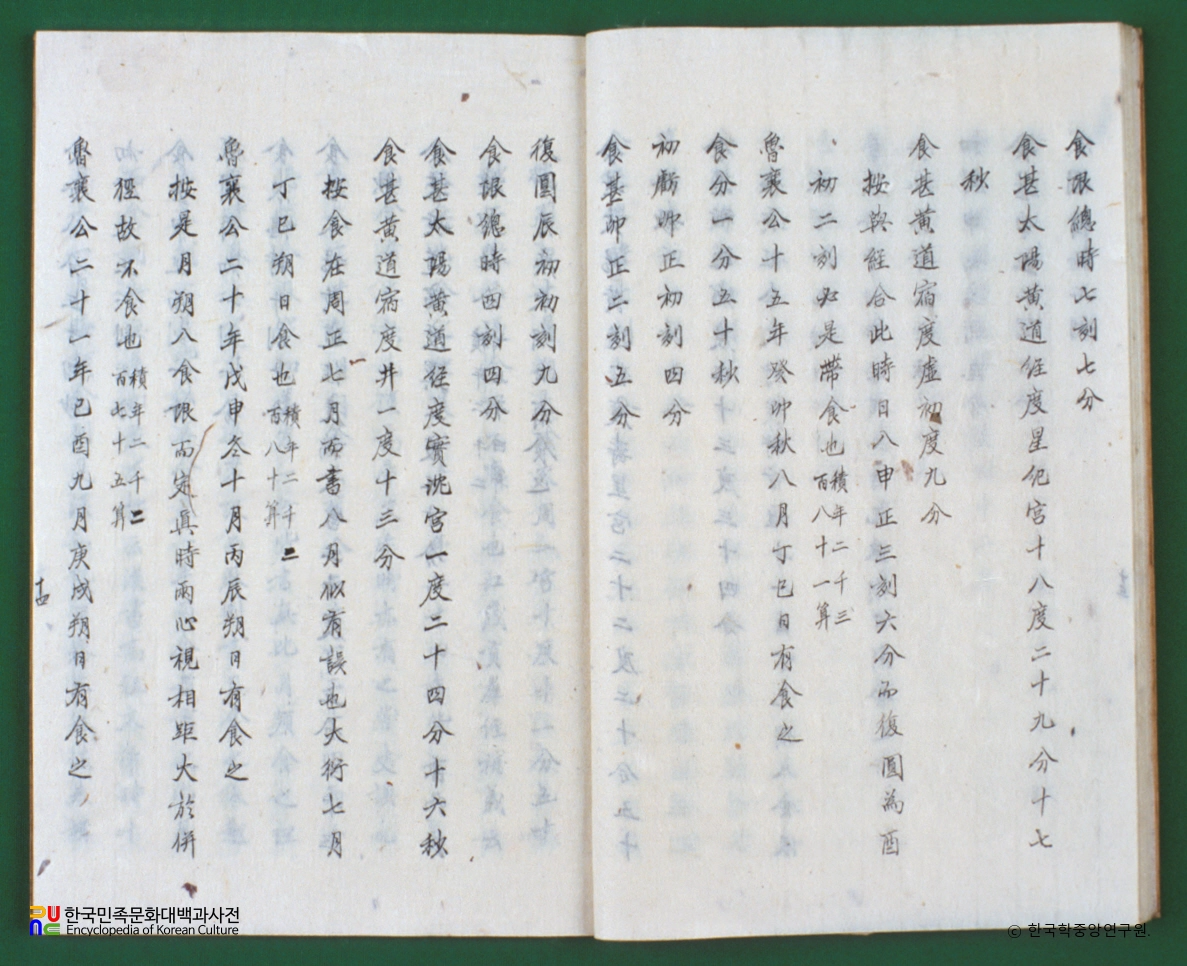 食限總時七刻七分
食甚太陽黃道經度星紀宮十八度二十九分十七
秒
食甚黃道宿度虛初度九分
按與經合此時日入申正三刻六分而復圓為酉
初二刻必是帶食也積年二千三百八十一算
魯襄公十五年癸卯秋八月丁巳日有食之
食分一分五十秒
初虧卯正初刻四分
食甚卯正二刻五分
復圓辰初初刻九分
食限總時四刻四分
食甚太陽黃道經度實沈宮一度二十四分十六秒
食甚黃道宿度井一度十三分
按食在周正七月而書八月似有誤也大衍七月
丁巳朔日食也積年二千二百八十算
魯襄公二十年戊申冬十月丙辰朔日有食之
按是月朔入食限而定真時兩心視相距大於併
徑故不食也積年二千二百七十五算
魯襄公二十一年己酉九月庚戌朔日有食之
十四
한국민족문화대백과사전
Encyclopedia of Korean Culture
© 한국학중앙연구원.